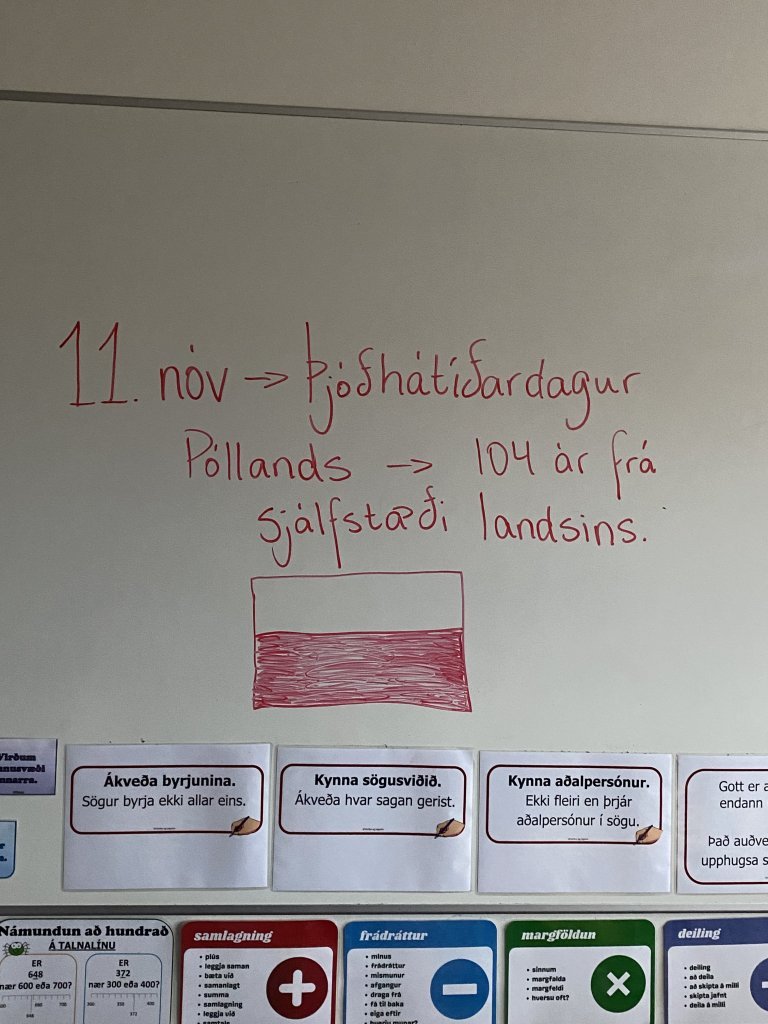 11. nóv → Þjóðhátíðardagur
Póllands → 104 ár frá
sjálfstæði landsins.
Virðum
nnarra.
Ákveða byrjunina.
Sögur byrja ekki allar eins.
Kynna sögusviðið.
Ákveða hvar sagan gerist.
Kynna aðalpersónur.
Ekki fleiri en þrjár
aðalpersónur í sögu.
Gott er a
endann
Það auðve
upphugsa s
Námundun að hundrað
Á TALNALÍNU
ER
648
nær 600 eða 700?
ER
372
nær 300 eða 400?
samlagning
• plús
• leggja saman
• bæta við
• samanlagt
• summa
• samlagning
• leggja við
• samtals
+
frádráttur
• mínus
• frádráttur
• mismunur
• afgangur
• draga frá
• fá til baka
• eiga eftir
• hverju munar?
−
margföldun
• sinnum
• margfalda
• margfeldi
• hversu oft?
×
deiling
• deiling
• að deila
• að skipta á milli
• skipta jafnt
• deila á milli